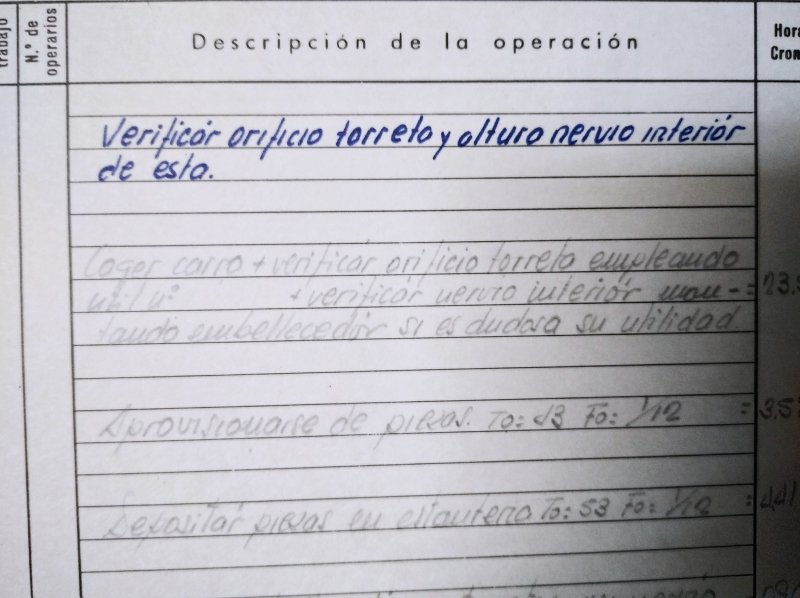 trabajo
N.º de operarios
Descripción de la operación
Hora
Cron
Verificar orificio torreta y altura nervio interiór
de esta.
Coger carro + verificar orificio torreta empleando
util nº + verificar nervio interiór mon- = 23.5
tando embellecedór si es dudosa su utilidad
Aprovisionarse de piezas. To: 43 Fo: 1/12 = 3.5
Depositar piezas en estanteria To: 53 Fo: 1/12 = 4,41